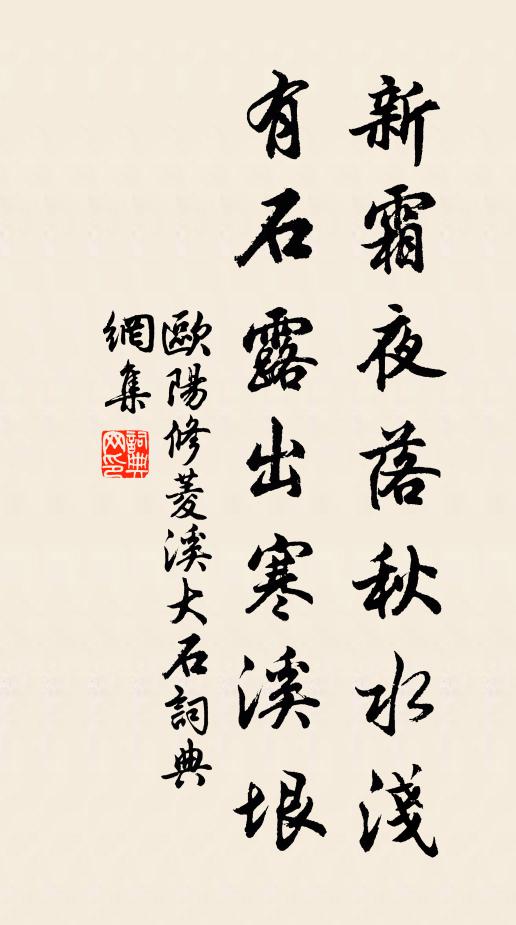 新霜夜落秋水淺
有石露出寒溪垠
歐陽修菱溪大石詞典
網集
詞典網印